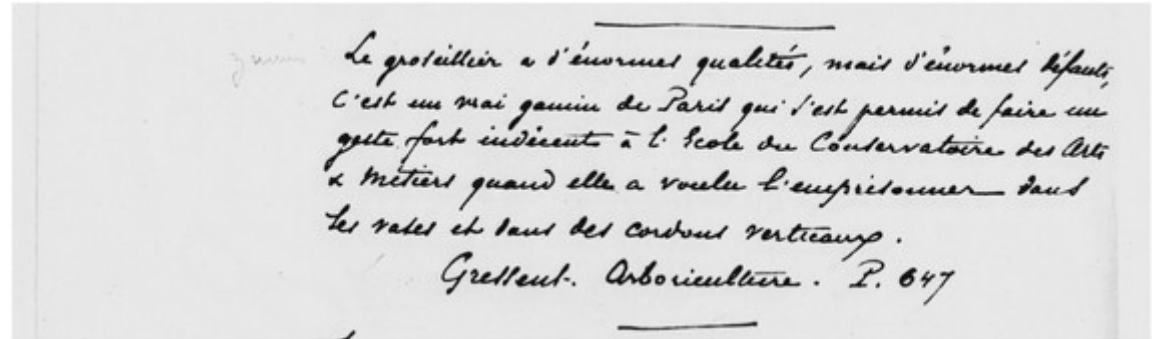 Le groseillier a d'énormes qualités, mais d'énormes défauts,
C'est un vrai gamin de Paris qui s'est permis de faire un
geste fort indécent à l'Ecole du Conservatoire des Arts
& Métiers quand elle a voulu l'emprisonner dans
les vases et dans des cordons verticaux.
Gressent. Arboriculture. P. 647